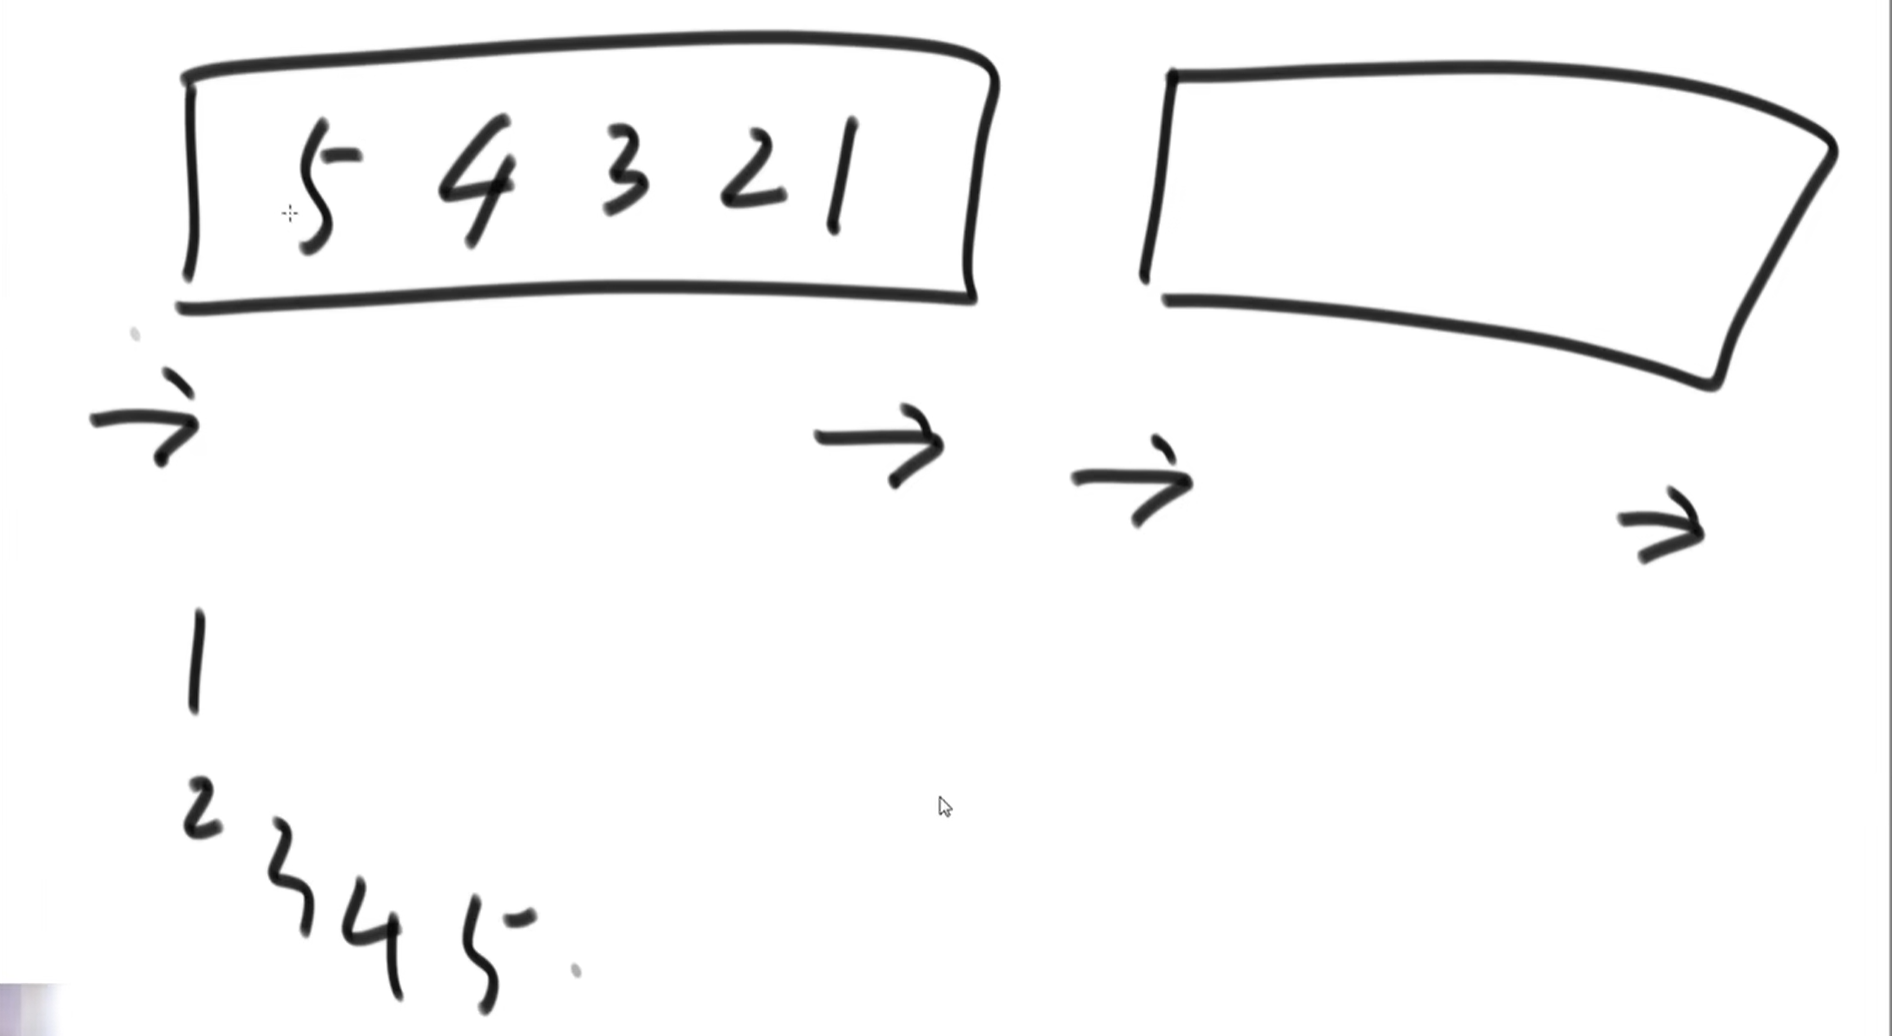 5 4 3 2 1
1
2 3 4 5